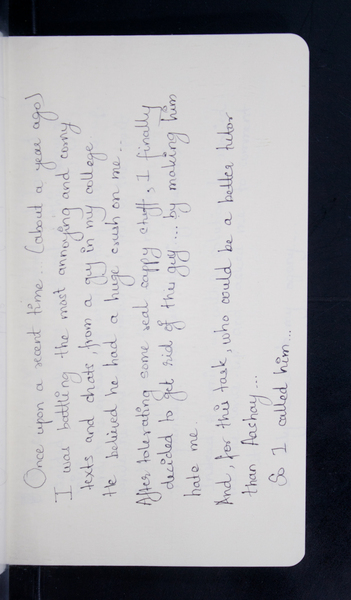 Once upon a recent time. (about a year ago)
I was battling the most annoying and corny
texts and chats, from a guy in my college.
He believed he had a huge crush on me...
After tolerating some real crappy stuff, I finally
decided to get rid of this guy... by making him
hate me.
And, for this task, who could be a better tutor
than Aashay...
So I called him...